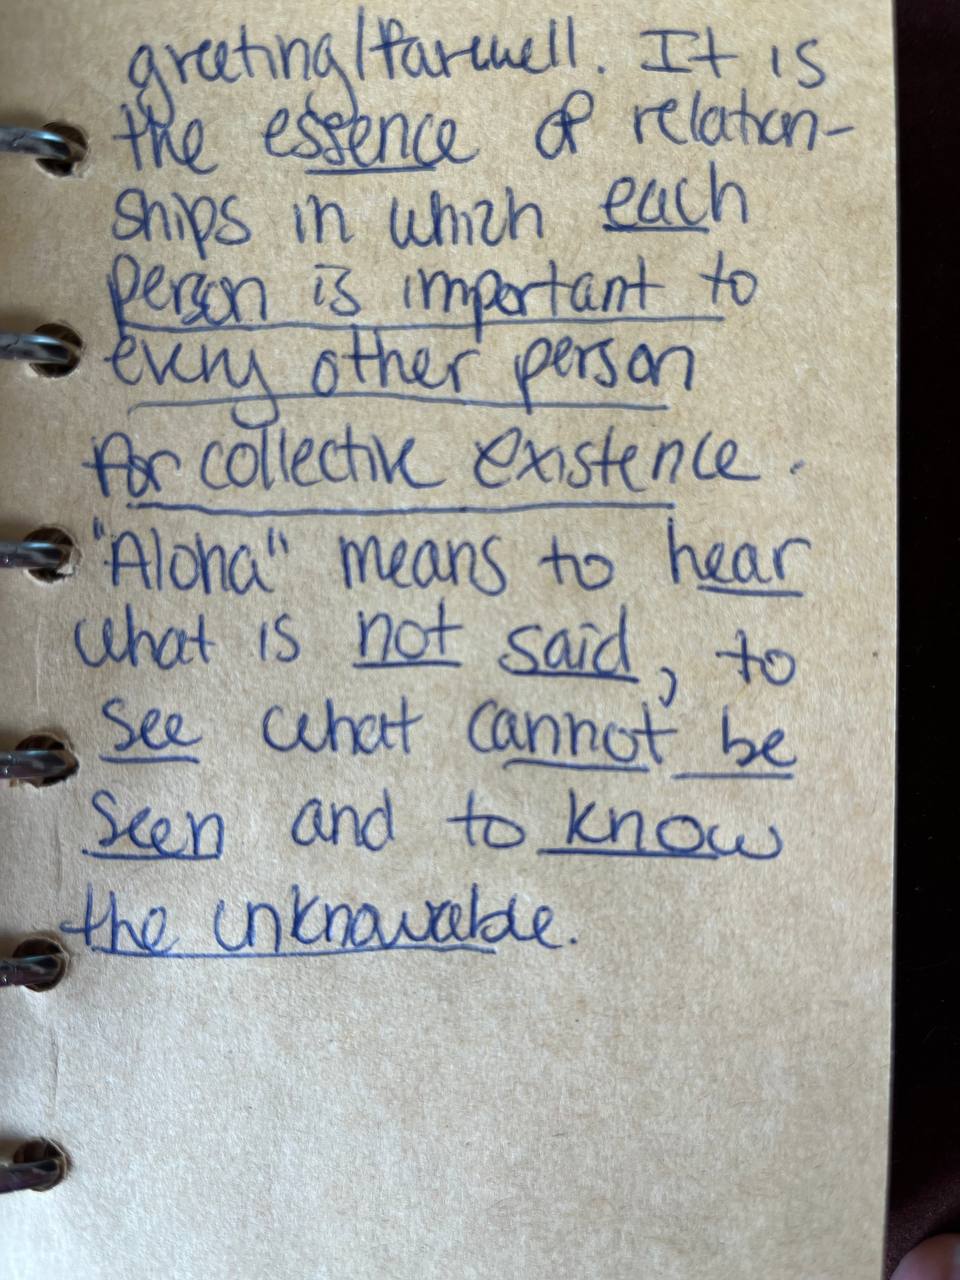 greeting/farewell. It is
the essence of relation-
ships in which each
person is important to
every other person
for collective existence.
"Aloha" means to hear
what is not said, to
see what cannot be
seen and to know
the unknowable.